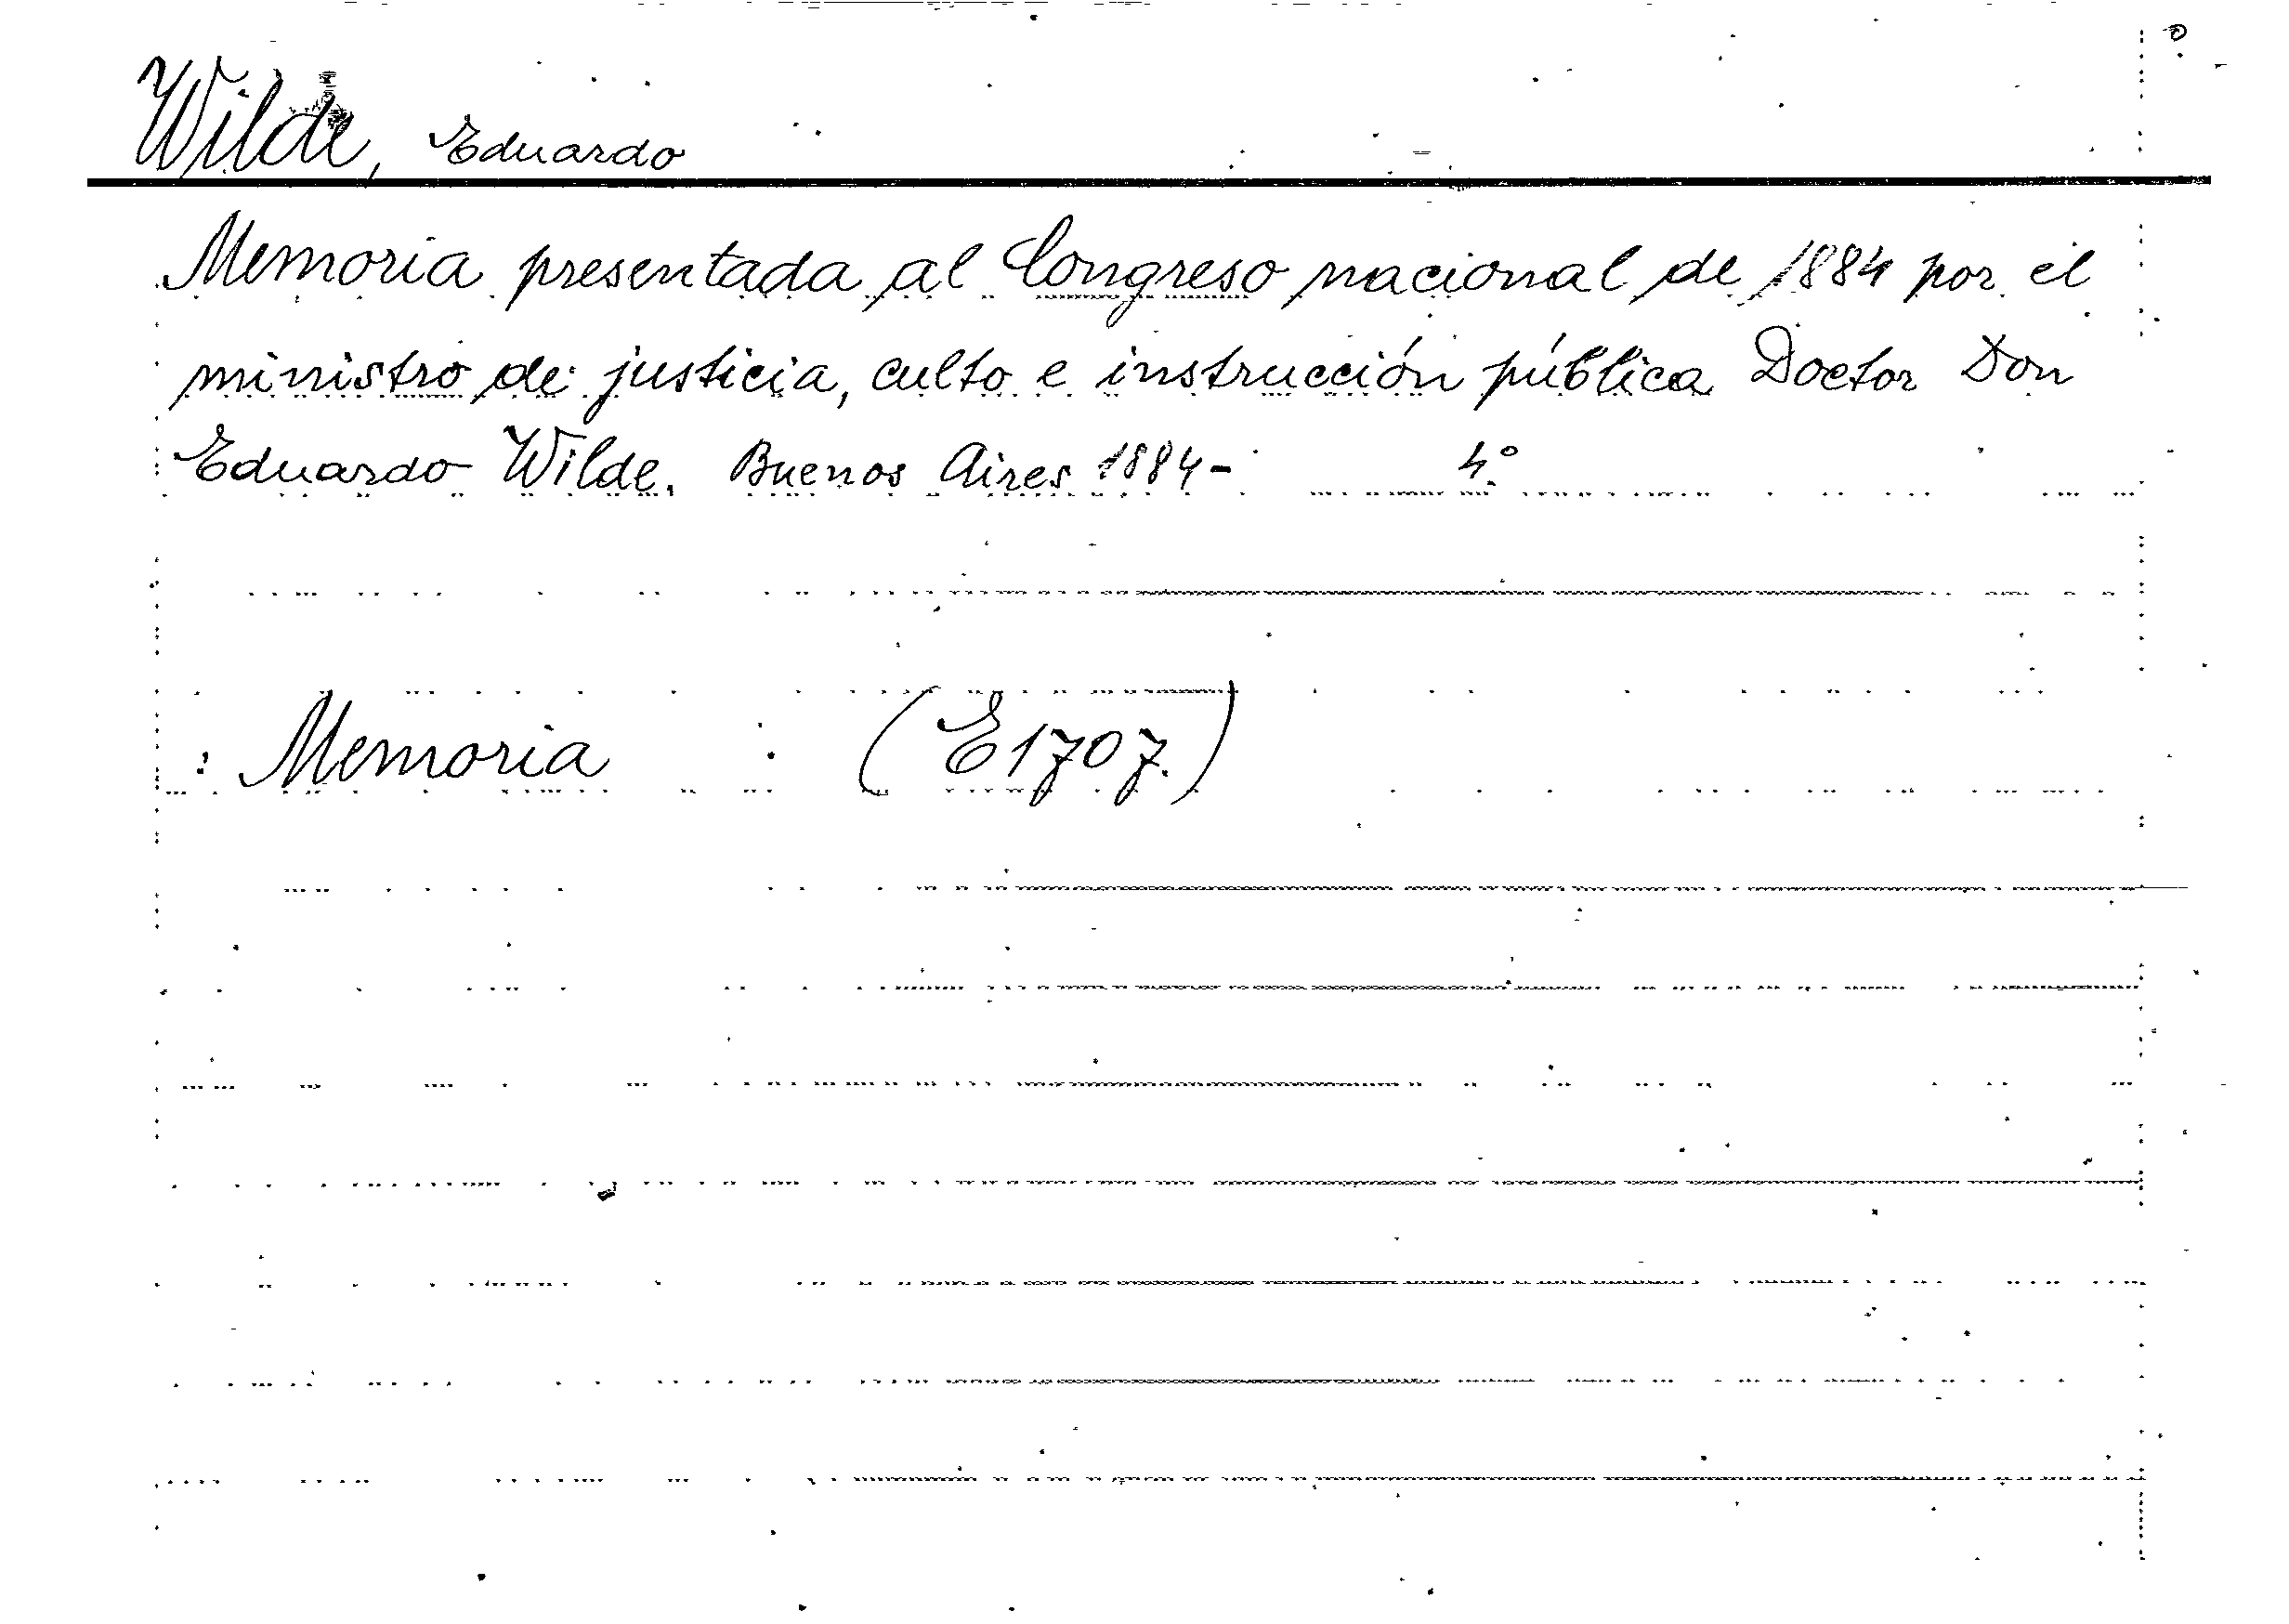 Wilde, Eduardo
Memoria presentada al Congreso nacional de 1884 por el
ministro de justicia, culto e instrucción pública Doctor Don
Eduardo Wilde. Buenos Aires 1884- 4.°
Memoria (E1707.)